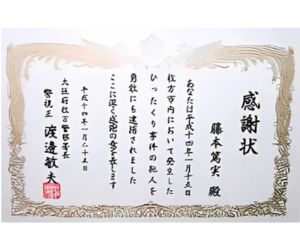 感謝状
藤本篤実 殿
あなたは平成十四年一月十五日
枚方市内において発生した
ひったくり事件の犯人を
勇敢にも逮捕されました
ここに深く感謝の意を表します
平成十四年一月二十五日
大阪府枚方警察署長
警視正 渡邊敏夫